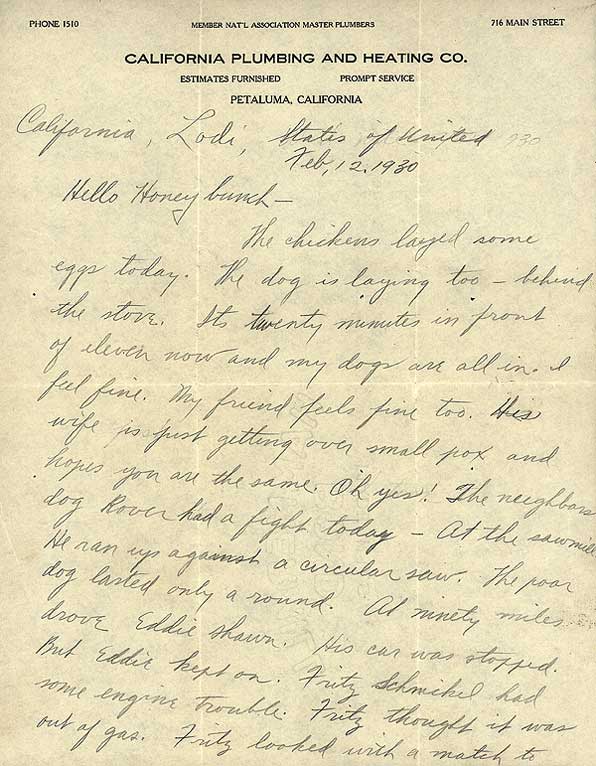 PHONE 1510 MEMBER NAT'L ASSOCIATION MASTER PLUMBERS 716 MAIN STREET
CALIFORNIA PLUMBING AND HEATING CO.
ESTIMATES FURNISHED PROMPT SERVICE
PETALUMA, CALIFORNIA
California, Lodi, States of United 930
Feb, 12, 1930
Hello Honey bunch—
The chickens layed some
eggs today. The dog is laying too – behind
the stove. Its twenty minutes in front
of eleven now and my dogs are all in. I
feel fine. My friend feels fine too. His
wife is just getting over small pox and
hopes you are the same. Oh yes! The neighbors
dog Rover had a fight today – At the sawmill
He ran up against a circular saw. The poor
dog lasted only a round. At ninety miles
drove Eddie Shawn. His car was stopped.
But Eddie kept on. Fritz Schmikel had
some engine trouble. Fritz thought it was
out of gas. Fritz looked with a match to